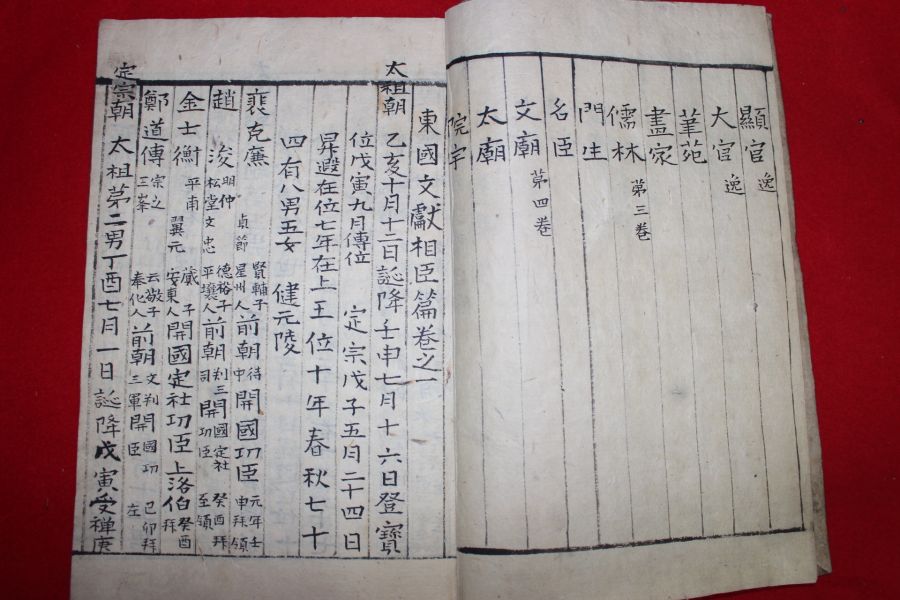 顯官 逸
大官 逸
筆苑
畫家
儒林 第三卷
門生
名臣
文廟 第四卷
太廟
院宇
東國文獻相臣篇卷之一
太祖朝 乙亥十月十一日誕降壬申七月十六日登寶
位戊寅九月傳位 定宗戊子五月二十四日
昇遐在位七年在上王位十年春秋七十
四有八男五女 健元陵
裵克廉 貞節 賢輔子 星州人 前朝侍中 開國功臣 元年壬申拜領
趙浚 明仲 松堂 文忠 德裕子 平壤人 前朝判三司 開國定社功臣 癸酉拜 至領
金士衡 平甫 翼元 蕆子 安東人 開國定社功臣 上洛伯 癸酉拜
鄭道傳 宗之 三峯 云敬子 奉化人 前朝文判三軍 開國功臣 己卯拜左
定宗朝 太祖第二男丁酉七月一日誕降戊寅受禪庚